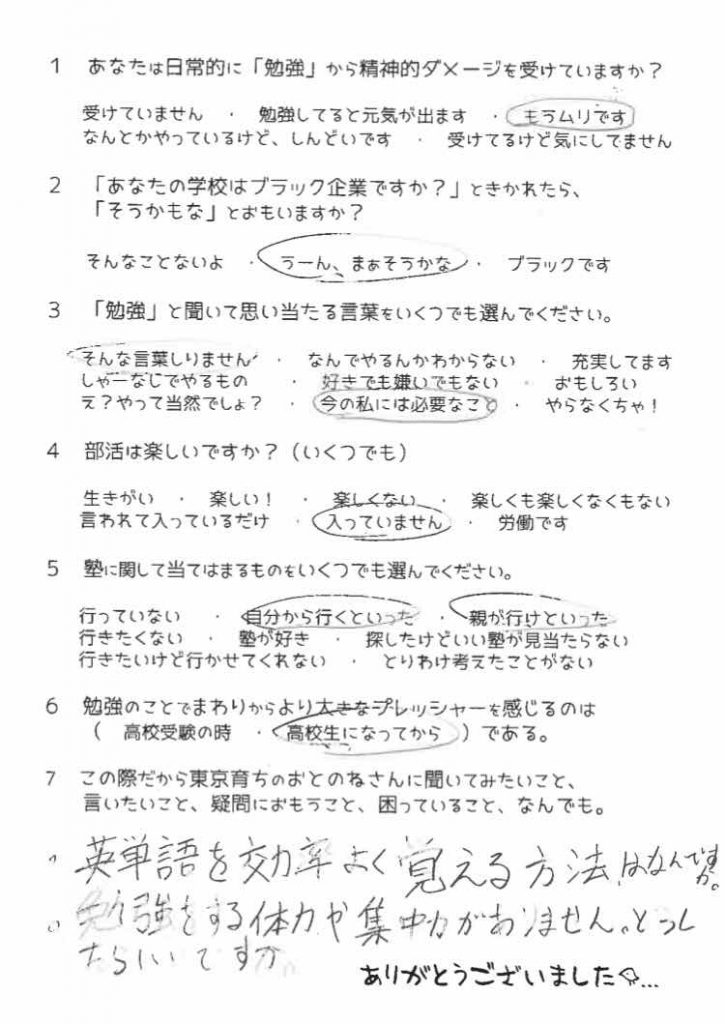 1 あなたは日常的に「勉強」から精神的ダメージを受けていますか？
受けていません ・ 勉強してると元気が出ます ・ もうムリです
なんとかやっているけど、しんどいです ・ 受けてるけど気にしてません
2 「あなたの学校はブラック企業ですか？」ときかれたら、
「そうかもな」とおもいますか？
そんなことないよ ・ うーん、まぁそうかな ・ ブラックです
3 「勉強」と聞いて思い当たる言葉をいくつでも選んでください。
そんな言葉しりません ・ なんでやるんかわからない ・ 充実してます
しゃーなしでやるもの ・ 好きでも嫌いでもない ・ おもしろい
え？やって当然でしょ？ ・ 今の私には必要なこと ・ やらなくちゃ！
4 部活は楽しいですか？（いくつでも）
生きがい ・ 楽しい！ ・ 楽しくない ・ 楽しくも楽しくなくもない
言われて入っているだけ ・ 入っていません ・ 労働です
5 塾に関して当てはまるものをいくつでも選んでください。
行っていない ・ 自分から行くといった ・ 親が行けといった
行きたくない ・ 塾が好き ・ 探したけどいい塾が見当たらない
行きたいけど行かせてくれない ・ とりわけ考えたことがない
6 勉強のことでまわりからより大きなプレッシャーを感じるのは
（ 高校受験の時 ・ 高校生になってから ）である。
7 この際だから東京育ちのおとのねさんに聞いてみたいこと、
言いたいこと、疑問におもうこと、困っていること、なんでも。
英単語を効率よく覚える方法はなんですか。
勉強をする体力や集中力がありません。どうし
たらいいですか。
ありがとうございました...